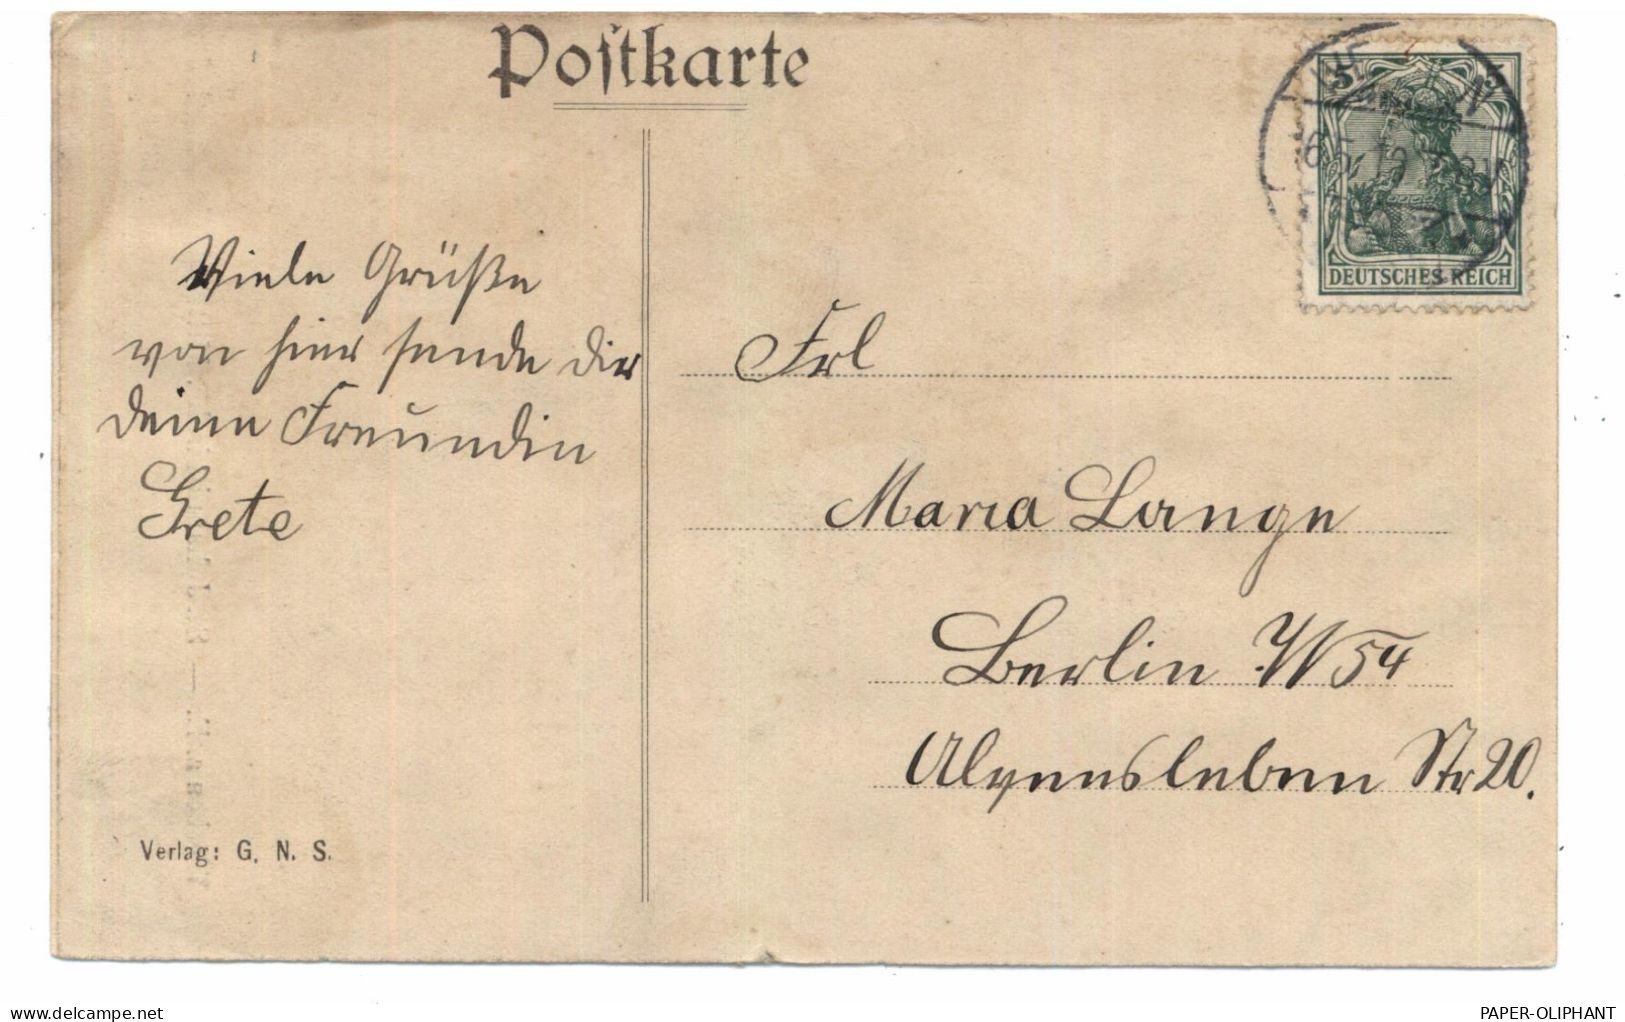 Postkarte
5 5
DEUTSCHES REICH
Viele Grüße
von hier sende dir
deine Freundin
Grete
Verlag: G. N. S.
Frl
Maria Lange
Berlin W 54
Alvensleben Str 20.
www.delcampe.net
PAPER-OLIPHANT